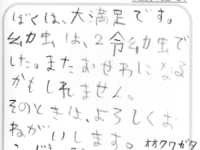 ぼくは、大満足です。
幼虫は、2令幼虫で
した。またおせわになる
かもしれません。
そのときは、よろしくお
ねがいします。 オオクワガタ